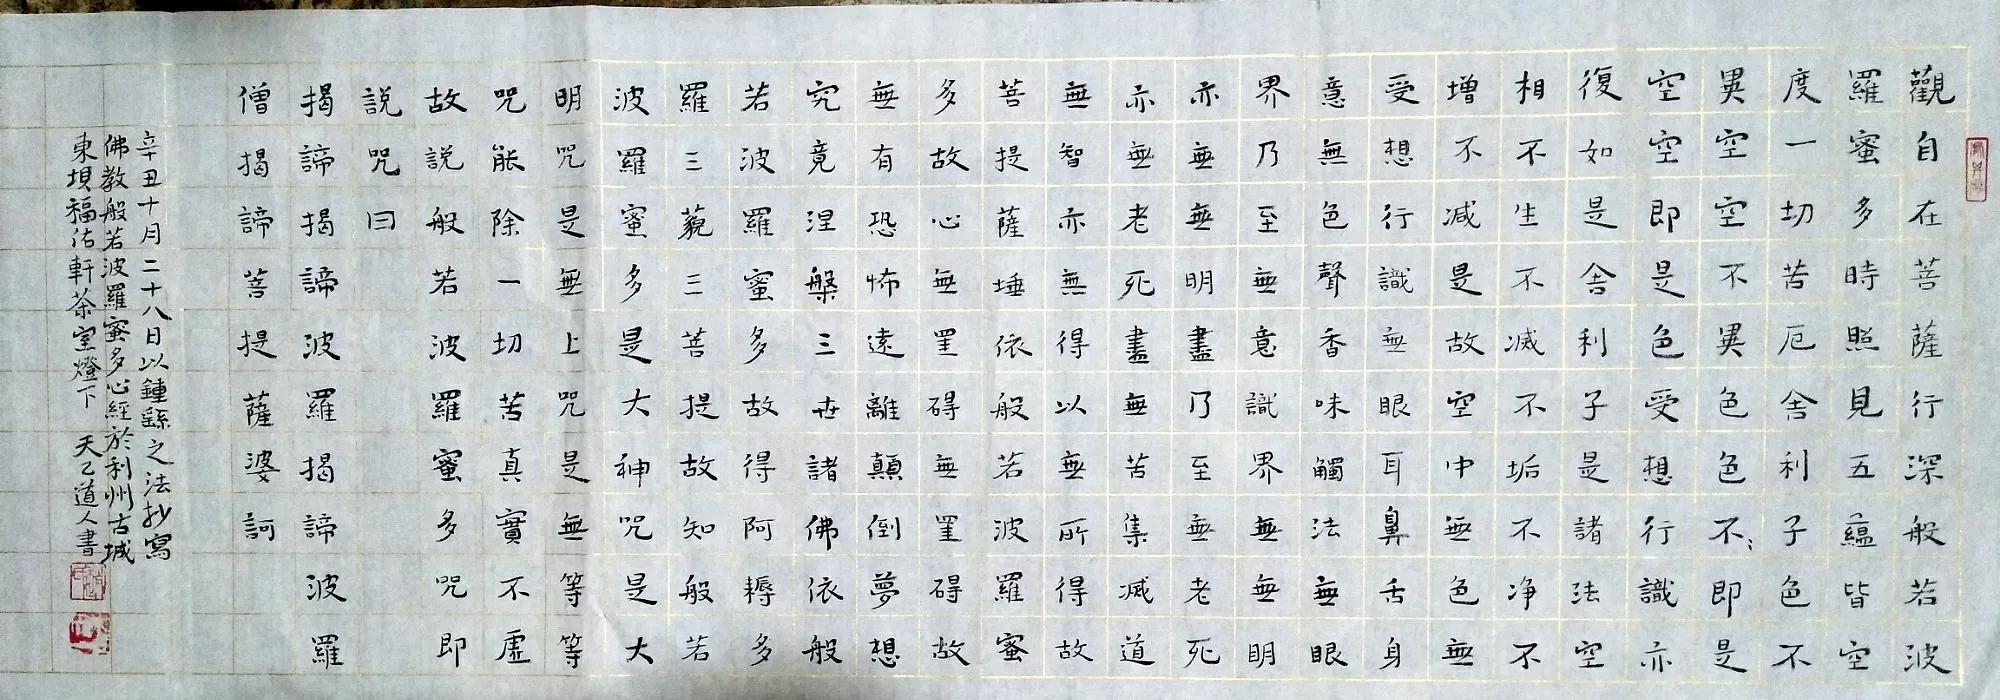 觀自在菩薩行深般若波
羅蜜多時照見五蘊皆空
度一切苦厄舍利子色不
異空空不異色色不即是
空空即是色受想行識亦
復如是舍利子是諸法空
相不生不滅不垢不净不
增不减是故空中無色無
受想行識無眼耳鼻舌身
意無色聲香味觸法無眼
界乃至無意識界無無明
亦無無明盡乃至無老死
亦無老死盡無苦集滅道
無智亦無得以無所得故
菩提薩埵依般若波羅蜜
多故心無罣碍無罣碍故
無有恐怖遠離顛倒夢想
究竟涅槃三世諸佛依般
若波羅蜜多故得阿耨多
羅三藐三菩提故知般若
波羅蜜多是大神咒是大
明咒是無上咒是無等等
咒能除一切苦真實不虛
故說般若波羅蜜多咒即
說咒曰
揭諦揭諦波羅揭諦波羅
僧揭諦菩提薩婆訶
辛丑十月二十八日以鍾繇之法抄寫
佛教般若波羅蜜多心經於利州古城
東垻福佑軒茶室燈下 天乙道人書